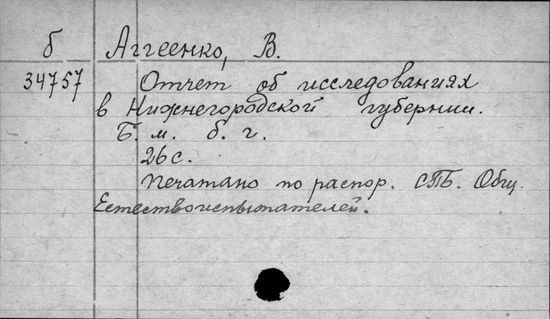 б Аггеенко, В.
34757 Отчет об исследованиях
в Нижнегородской губернии.
Б. м. б. г.
26 с.
Печатано по распор. СПБ. Общ.
Естествоиспытателей.